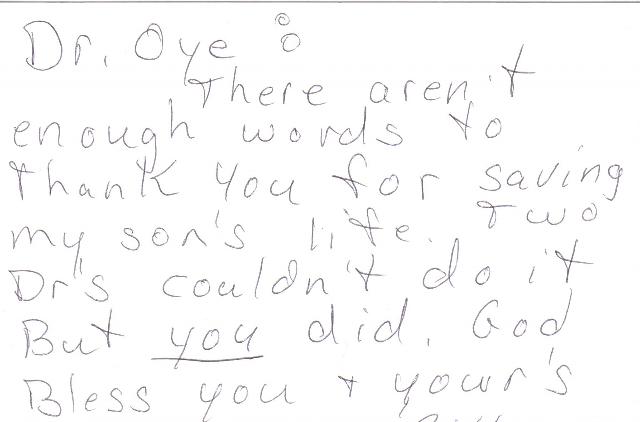 Dr. Oye :
There aren't
enough words to
thank you for saving
my son's life. Two
Dr's couldn't do it
But you did. God
Bless you + your's